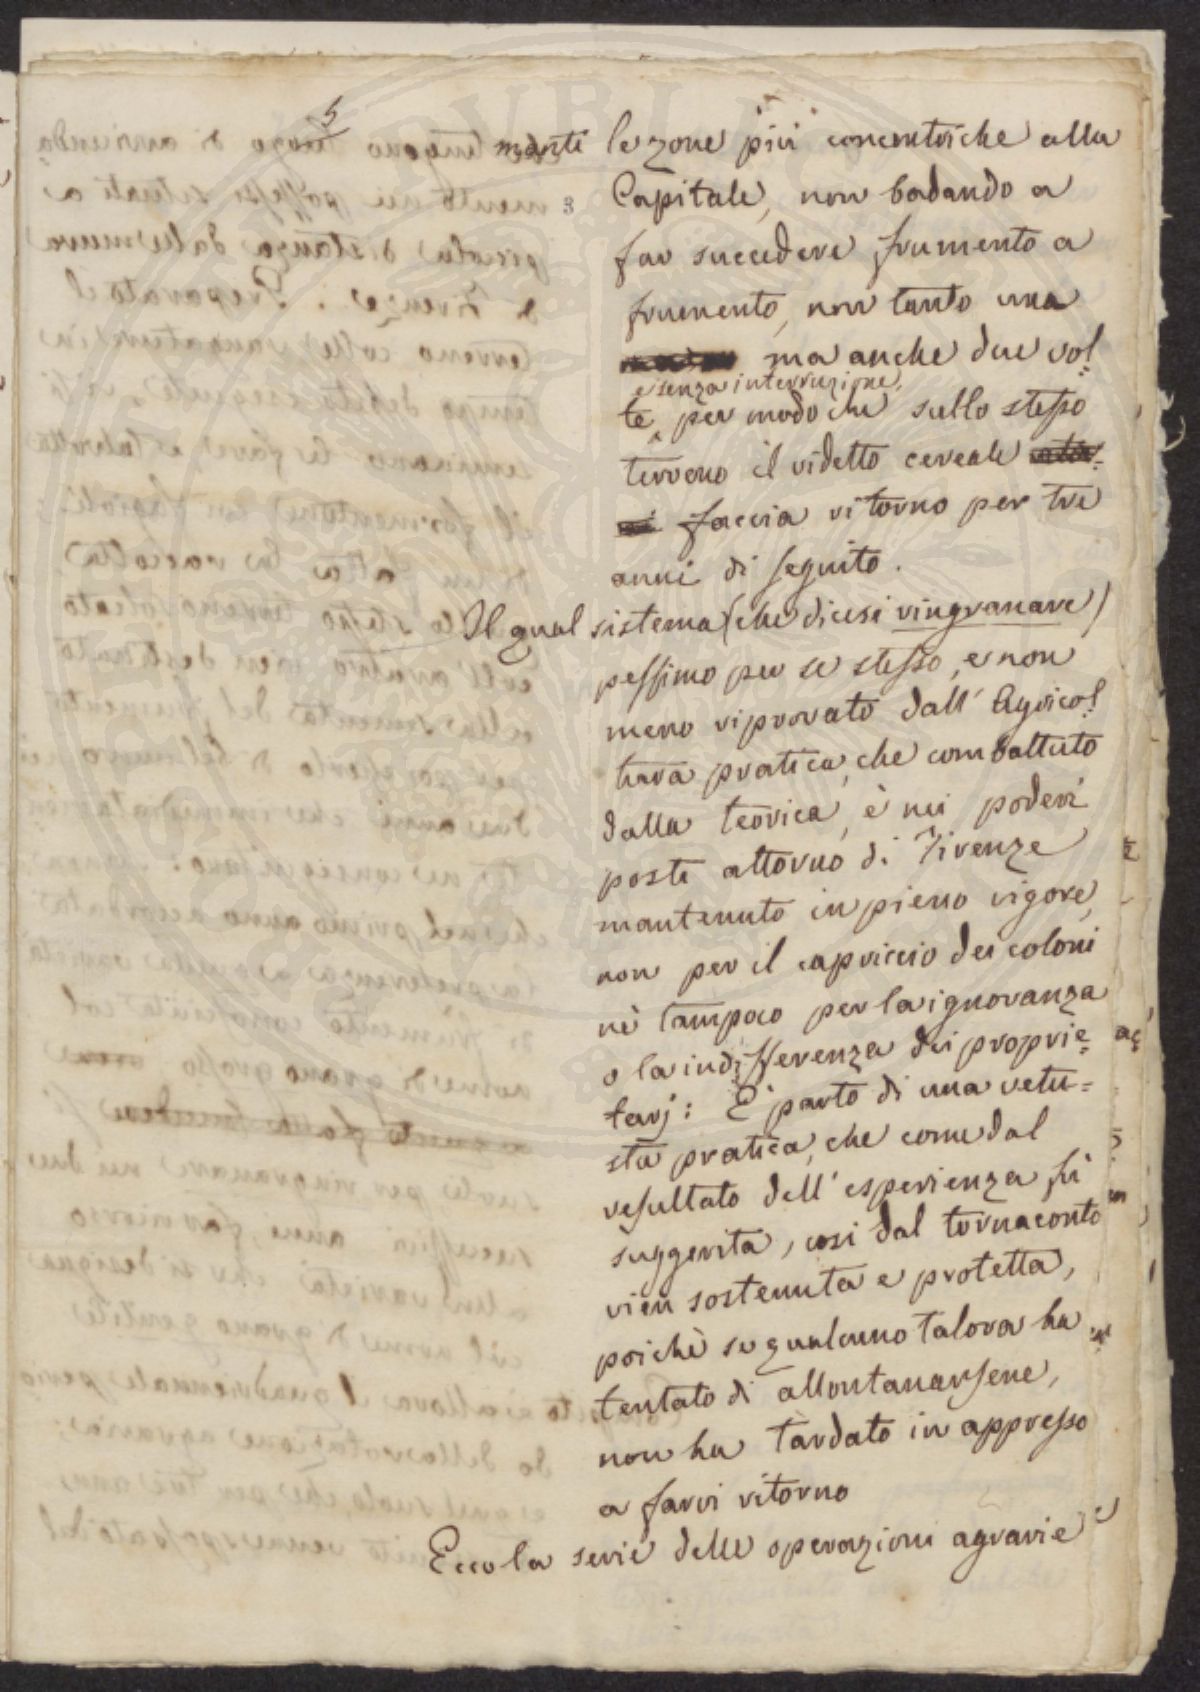 5
manti le zone più concentriche alla
3 Capitale, non badando a
far succedere frumento a
frumento, non tanto una
ma anche due vol=
e senza interruzione,
te, per modo che sullo stesso
terreno il ridetto cereale
faccia ritorno per tre
anni di seguito.
Il qual sistema (che dicesi ringranare)
pessimo per se stesso, e non
meno riprovato dall' Agricol=
tura pratica, che combattuto
dalla teorica, è nei poderi
posti attorno di Firenze
mantenuto in pieno vigore,
non per il capriccio dei coloni
nè tampoco per la ignoranza
o la indifferenza dei proprie=
tarj: È parto di una vetu=
sta pratica, che come dal
resultato dell' esperienza fù
suggerita, così dal tornaconto
vien sostenuta e protetta,
poichè se qualcuno talora ha
tentato di allontanarsene,
non ha tardato in appresso
a farvi ritorno
Ecco la serie delle operazioni agrarie